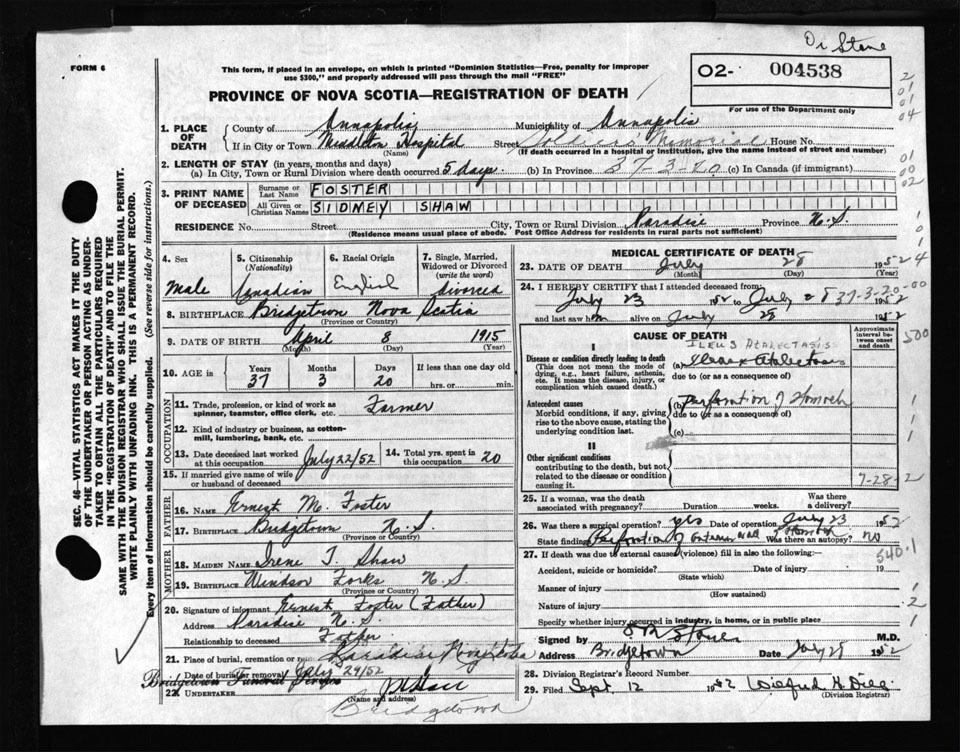 Dr Stone
FORM 6
This form, if placed in an envelope, on which is printed "Dominion Statistics—Free, penalty for improper
use $300," and properly addressed will pass through the mail "FREE"
02- 004538
For use of the Department only
PROVINCE OF NOVA SCOTIA—REGISTRATION OF DEATH
2
01
01
04
1. PLACE OF DEATH
County of Annapolis Municipality of Annapolis
If in City or Town Middleton Hospital Street Memorial House No.
(Name) (If death occurred in a hospital or institution, give the name instead of street and number)
2. LENGTH OF STAY (in years, months and days)
(a) In City, Town or Rural Division where death occurred 5 days (b) In Province 37-3-20 (c) In Canada (if immigrant)
01
00
02
3. PRINT NAME OF DECEASED
Surname or Last Name FOSTER
All Given or Christian Names SIDNEY SHAW
RESIDENCE No. Street City, Town or Rural Division Paradise Province N.S.
(Residence means usual place of abode. Post Office Address for residents in rural parts not sufficient)
4. Sex
Male
5. Citizenship
(Nationality)
Canadian
6. Racial Origin
English
7. Single, Married,
Widowed or Divorced
(write the word)
divorced
8. BIRTHPLACE Bridgetown Nova Scotia
(Province or Country)
9. DATE OF BIRTH April 8 1915
(Month) (Day) (Year)
10. AGE in Years 37 Months 3 Days 20 If less than one day old
hrs. or min.
OCCUPATION
11. Trade, profession, or kind of work as
spinner, teamster, office clerk, etc. Farmer
12. Kind of industry or business, as cotton-
mill, lumbering, bank, etc.
13. Date deceased last worked
at this occupation July 22/52
14. Total yrs. spent in
this occupation 20
15. If married give name of wife
or husband of deceased
FATHER
16. Name Ernest M. Foster
17. Birthplace Bridgetown N.S.
(Province or Country)
MOTHER
18. MAIDEN NAME Irene T. Shaw
19. BIRTHPLACE Windsor Forks N.S.
(Province or Country)
20. Signature of informant Ernest Foster (Father)
Address Paradise N.S.
Relationship to deceased Father
21. Place of burial, cremation or Paradise
Date of burial or removal July 29/52
Bridgetown Funeral
22. UNDERTAKER
(Name and address)
Bridgetown
MEDICAL CERTIFICATE OF DEATH
23. DATE OF DEATH July 28 1952
(Month) (Day) (Year)
24. I HEREBY CERTIFY that I attended deceased from
July 23 1952 to July 28 1952
37-3-20-00
and last saw him alive on July 28 1952
CAUSE OF DEATH
Approximate interval between onset and death
500
I
ILEUS ATALECTASIS
Disease or condition directly leading to death
(This does not mean the mode of
dying, e.g., heart failure, asthenia,
etc. It means the disease, injury, or
complication which caused death.)
(a)
due to (or as a consequence of)
Antecedent causes
Morbid conditions, if any, giving
rise to the above cause, stating the
underlying condition last.
(b) Perforation of Stomach
due to (or as a consequence of)
(c)
II
Other significant conditions
contributing to the death, but not
related to the disease or condition
causing it.
7-28-2
25. If a woman, was the death
associated with pregnancy? Duration weeks. Was there
a delivery?
26. Was there surgical operation? yes Date of operation July 23 1952
State findings Perforation of anterior wall stomach Was there an autopsy? no
540.1
27. If death was due to external causes (violence) fill in also the following:
Accident, suicide or homicide? Date of injury 19
(State which)
Manner of injury
(How sustained)
Nature of injury
Specify whether injury occurred in industry, in home, or in public place
Signed by Stone M.D.
Address Bridgetown Date July 29 1952
28. Division Registrar's Record Number
29. Filed Sept. 12 1952 Wilfred H. Dill
(Division Registrar)
SEC. 46—VITAL STATISTICS ACT MAKES IT THE DUTY
OF THE UNDERTAKER OR PERSON ACTING AS UNDER-
TAKER TO OBTAIN ALL THE PARTICULARS REQUIRED
IN THE "REGISTRATION OF DEATH" AND TO FILE THE
SAME WITH THE DIVISION REGISTRAR WHO SHALL ISSUE THE BURIAL PERMIT.
WRITE PLAINLY WITH UNFADING INK. THIS IS A PERMANENT RECORD.
Every item of information should be carefully supplied. (See reverse side for instructions.)